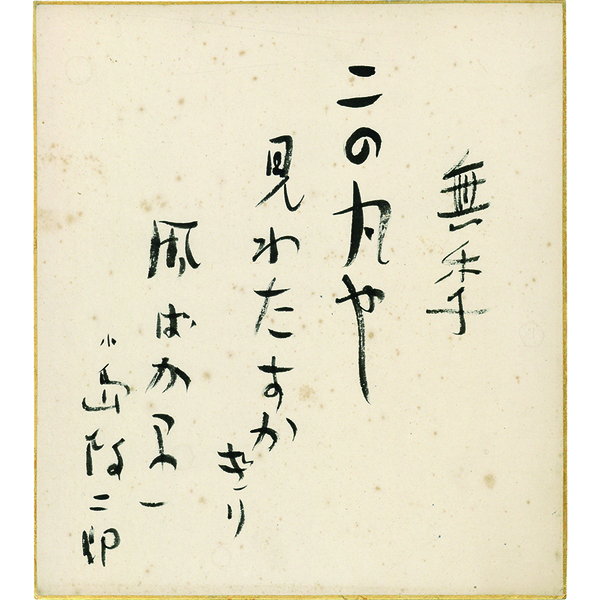 無季
二の丸や
見わたすか
ぎり
風ばか里
小島政二郎